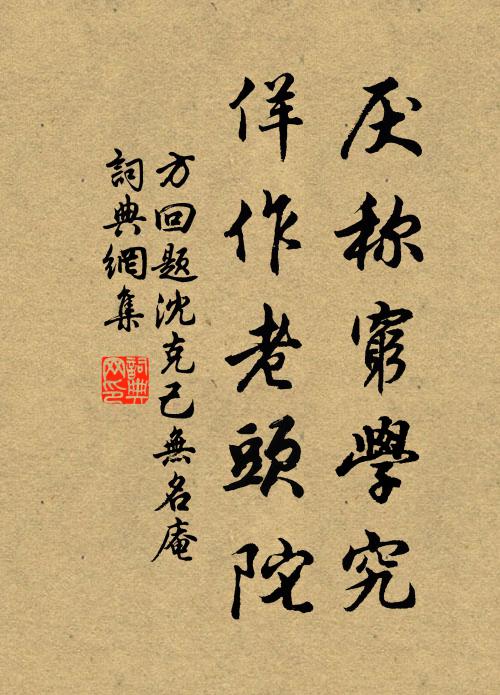 厌称窮學究
佯作老頭陀
方回题沈克己無名庵
詞典網集
詞典網印